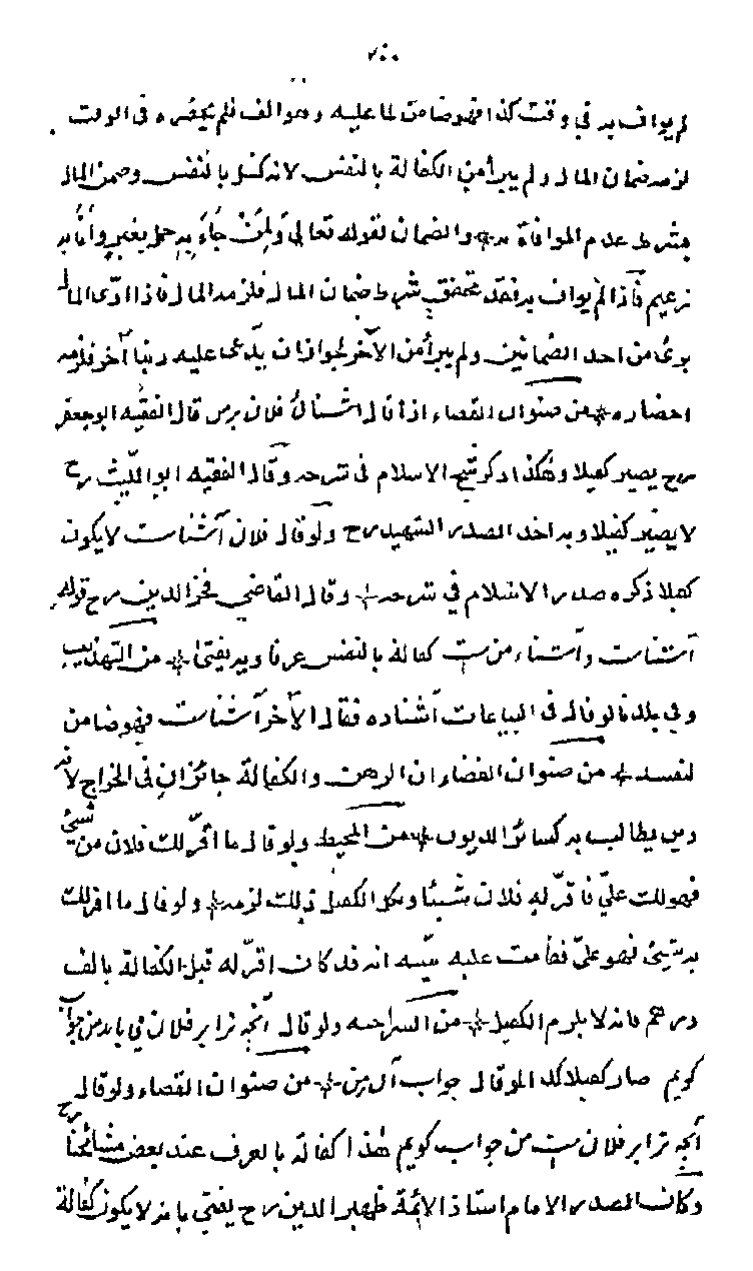 ٧٠٠
لم يواف به في وقت كذا فهو ضامن لما عليه وهو الف فلم يحضره في الوقت
لزمه ضمان المال ولم يبرأ من الكفالة بالنفس لانه كفل بالنفس وضمن المال
بشرط عدم الموافاة به والضمان لقوله تعالى ولمن جاء به حمل بعير وأنا به
زعيم فاذا لم يواف به فقد تحقق شرط ضمان المال فلزمه المال فاذا ادّى المال
برئ من احد الضمانين ولم يبرأ من الآخر لجواز ان يدّعى عليه دينا آخر فلزمه
احضاره من صنوان القضاء اذا قال فلان برمن قال الفقيه ابوجعفر
رح يصير كفيلا وهكذا ذكر شيخ الاسلام في شرحه وقال الفقيه ابو الليث رح
لا يصير كفيلا وبه اخذ الصدر الشهيد رح ولو قال فلان آشناست لا يكون
كفيلا ذكره صدر الاسلام في شرحه وقال القاضي فخر الدين رح قوله
آشناست وآشناء من ست كفالة بالنفس عرفا وبه يفتى من التهذيب
وفي بلدنا لو قال في البياعات آشناده فقال الآخر آشناست فهو ضامن
لنفسه من صنوان القضاء ان الرهن والكفالة جائزان في الخراج لانه
دين يطالب به كسائر الديون من المحيط ولو قال ما اقرّ لك فلان من شيئ
فهو لك عليّ فاقرّ له فلان شيئا وانكر الكفيل ذلك لزمه ولو قال ما اقر لك
به شيئ فهو عليّ فقامت عليه بينه انه قد كان اقرّ له قبل الكفالة بالف
درهم فانه لا يلزم الكفيل من السراجيه ولو قال آنچه ترا بر فلان في يابد من جواب
كويم صار كفيلا كذا لو قال جواب آن من من صنوان القضاء ولو قال
آنچه ترا بر فلان ست من جواب كويم هذا كفالة بالعرف عند بعض مشائخنا رح
وكان الصدر الامام استاذ الائمة ظهير الدين رح يفتي بانه لا يكون كفالة